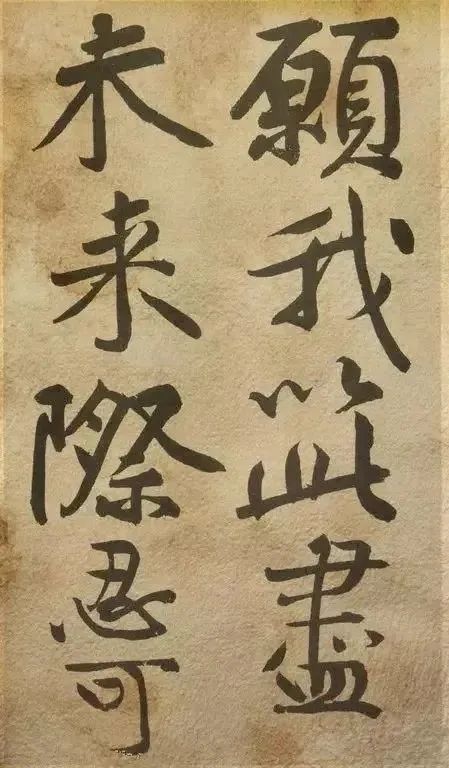 願我以此盡
未来際忍可